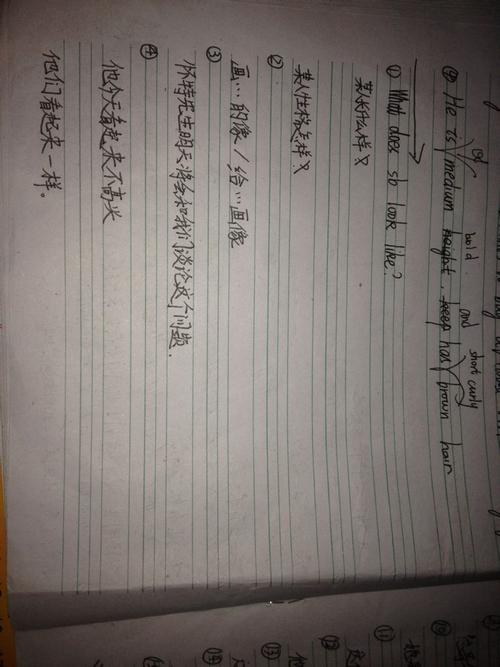 of bald and short curly
He is medium height. keep has brown hair
① What does sb look like?
某人长什么样
某人性格怎样
②
画…的像/给…画像
③
怀特先生明天将会和我们谈论这个问题.
④
他今天看起来不高兴
他们看起来一样。